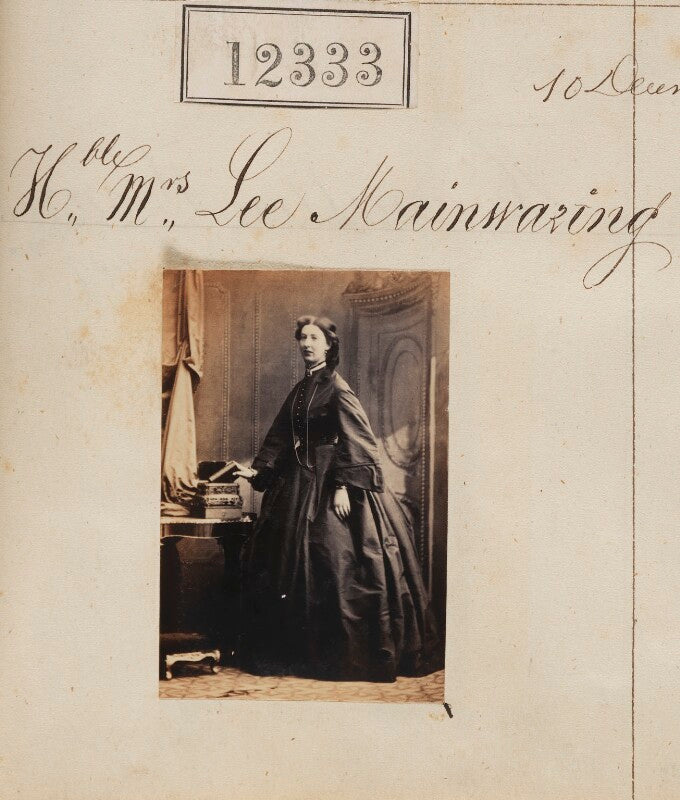 12333
10
Hble,, Mrs,, Lee Mainwaring